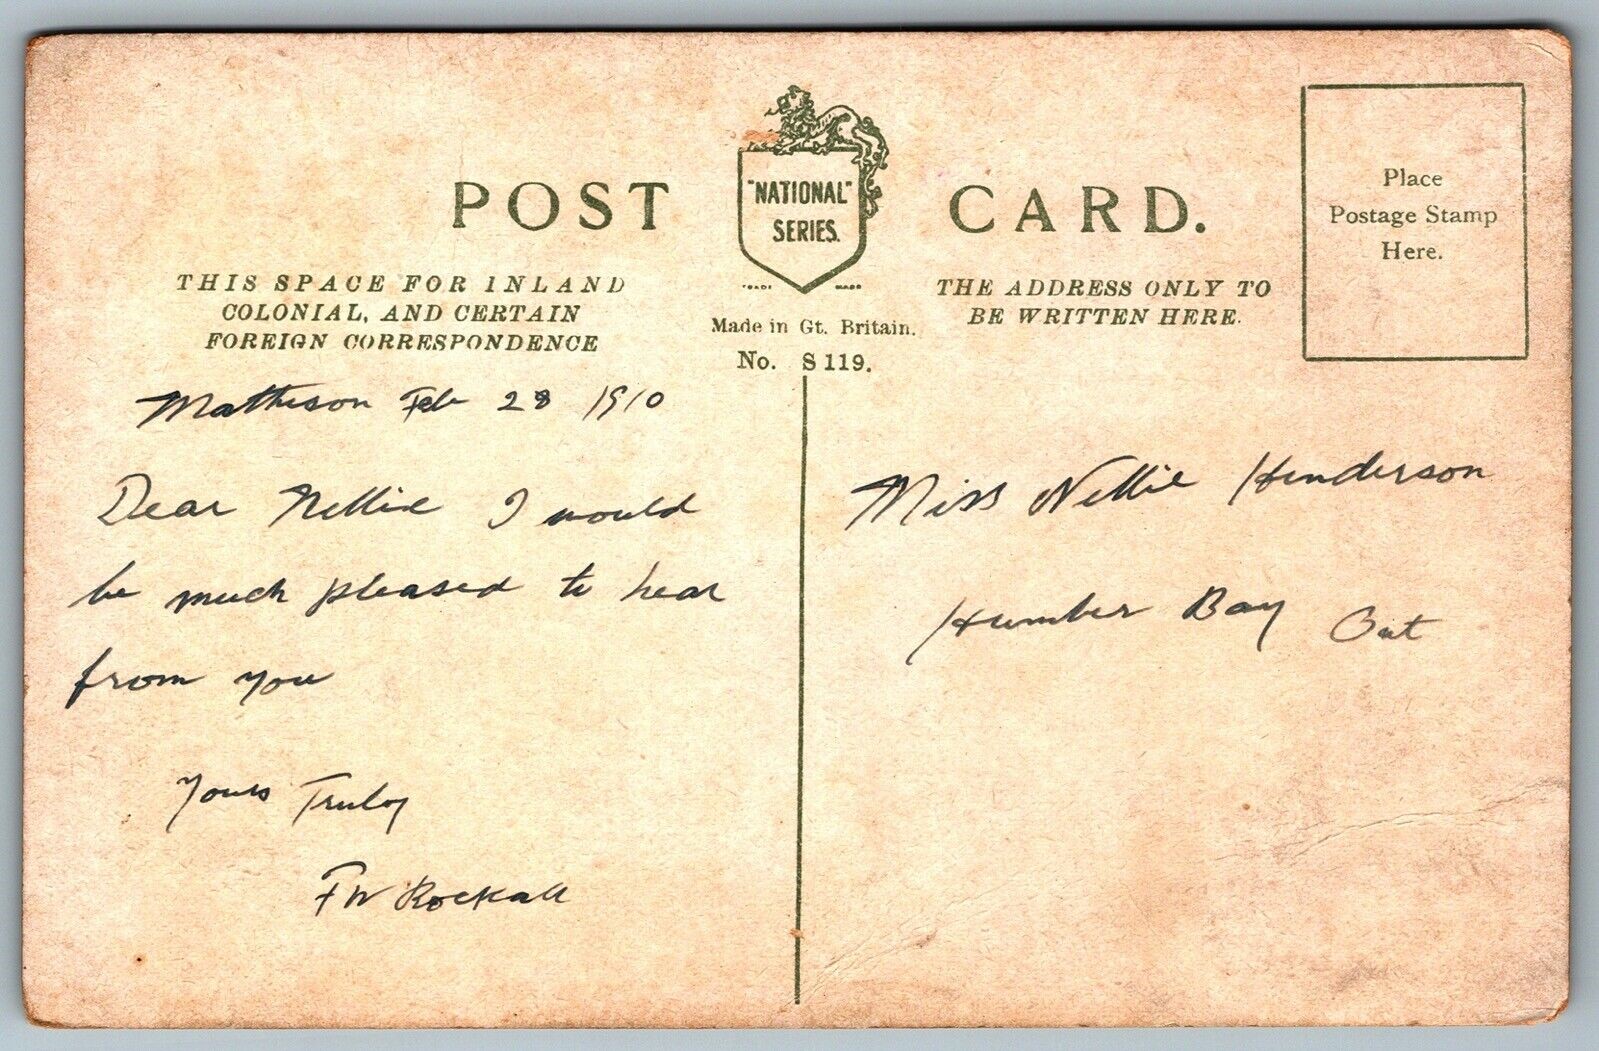 POST CARD.
"NATIONAL"
SERIES.
TRADE MARK
Made in Gt. Britain.
No. S 119.
THIS SPACE FOR INLAND
COLONIAL, AND CERTAIN
FOREIGN CORRESPONDENCE
THE ADDRESS ONLY TO
BE WRITTEN HERE.
Place
Postage Stamp
Here.
Matheson Feb 28 1910
Dear Nellie I would
be much pleased to hear
from you
Yours Truly
FW Rockall
Miss Nellie Henderson
Humber Bay Ont